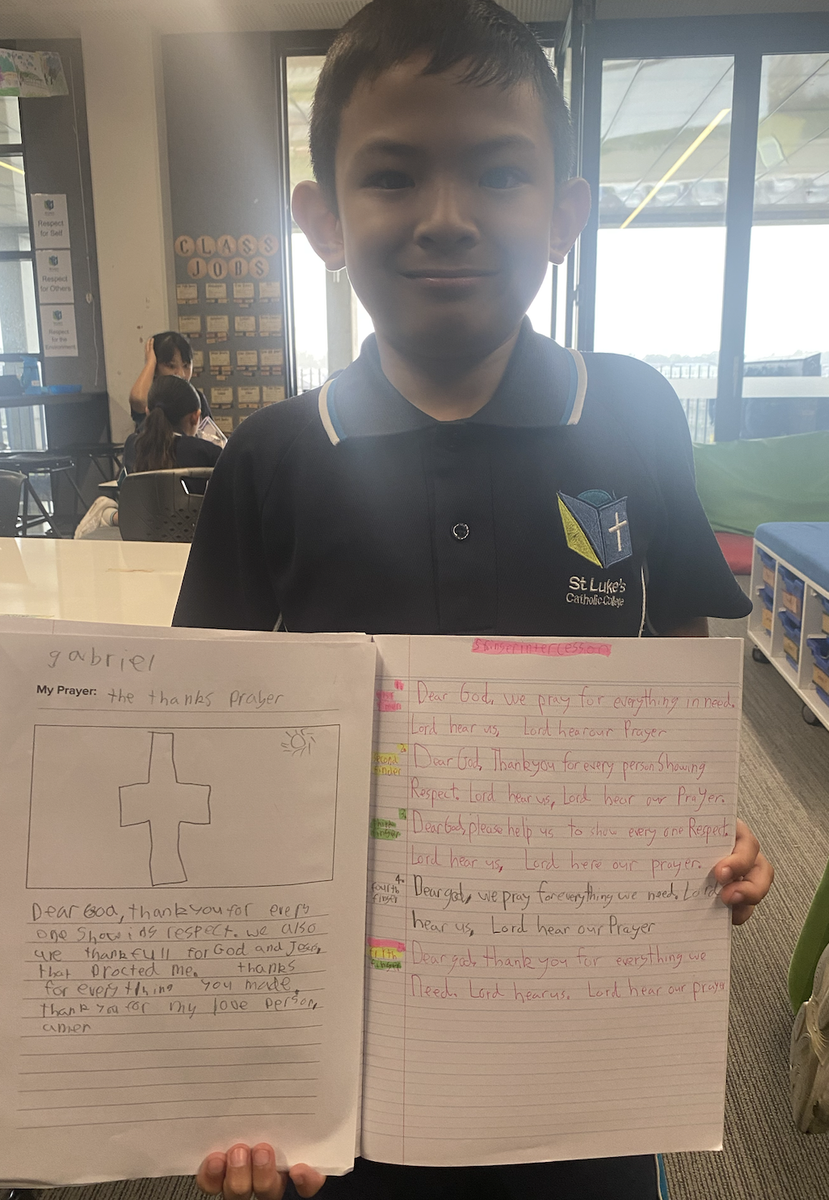 Respect
for Self
Respect
for Others
Respect
for the
Environment
CLASS
JOBS
St Luke's
Catholic College
gabriel
My Prayer: the thanks prayer
Dear God, thank you for every
one showing respect. we also
are thankfull for God and Jesus,
that procted me. thanks
for everything you made.
thank you for my love person,
amen
Dear God, we pray for everything in need.
Lord hear us, Lord hear our Prayer
Dear God, Thank you for every person Showing
Respect. Lord hear us, Lord hear our Prayer.
Dear God, please help us to show every one Respect.
Lord hear us, Lord here our prayer.
4.
fourth
finger
Dear god, we pray for everything we need. Lord
hear us, Lord hear our Prayer
fifth
Dear god, thank you for everything we
Need. Lord hear us. Lord hear our prayer